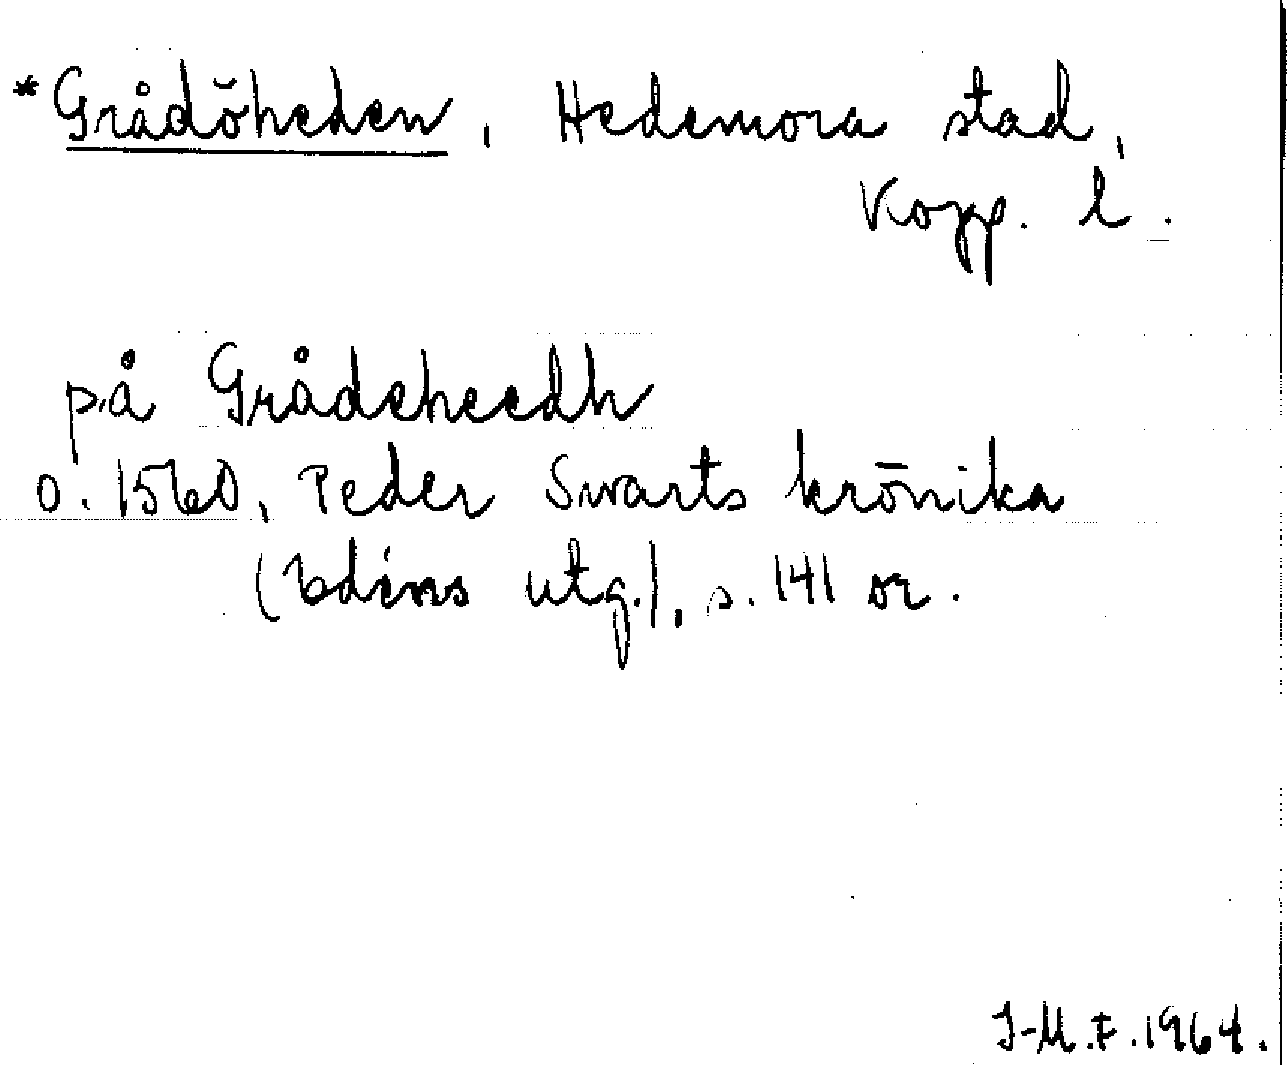 *Grådöheden, Hedemora stad,
Kopp. l.
på Grådeheedh
o. 1560, Peder Swarts krönika
(Edéns utg.), s. 141 or.
I-M.F. 1964.